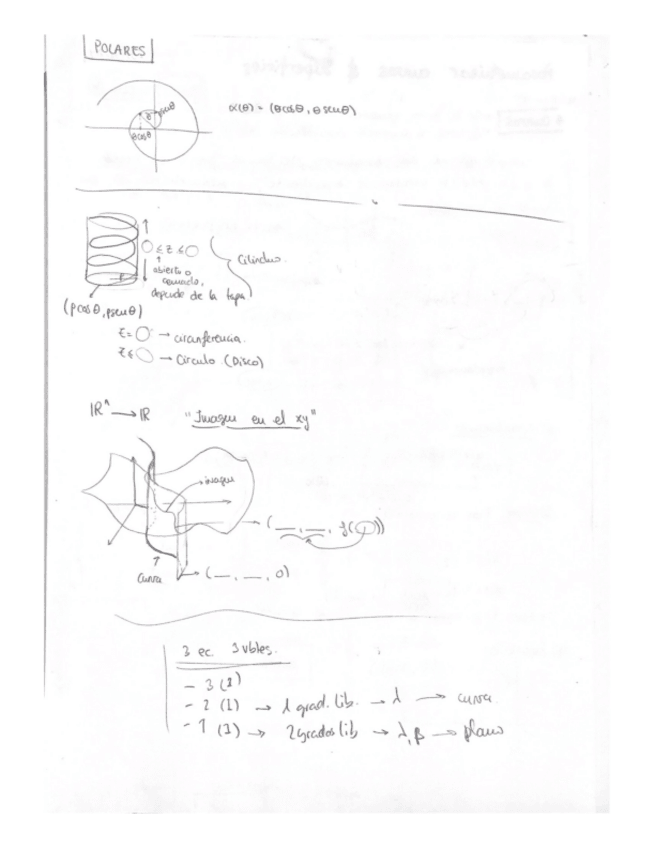 POLARES
α(θ) = (θcosθ, θsenθ)
θ
ρsenθ
θcosθ
≤ z ≤
abierto o
cerrado,
depende de la tapa
Cilindro.
(ρcosθ, ρsenθ)
z = → circunferencia.
z ≤ → Círculo (Disco)
ℝⁿ → ℝ "Imagen en el xy"
imagen
(__, __, f( ))
curva
(__, __, 0)
3 ec. 3 vbles.
- 3 (1)
- 2 (1) → 1 grad. lib. → λ → curva.
- 1 (1) → 2 grados lib → λ, β → plano